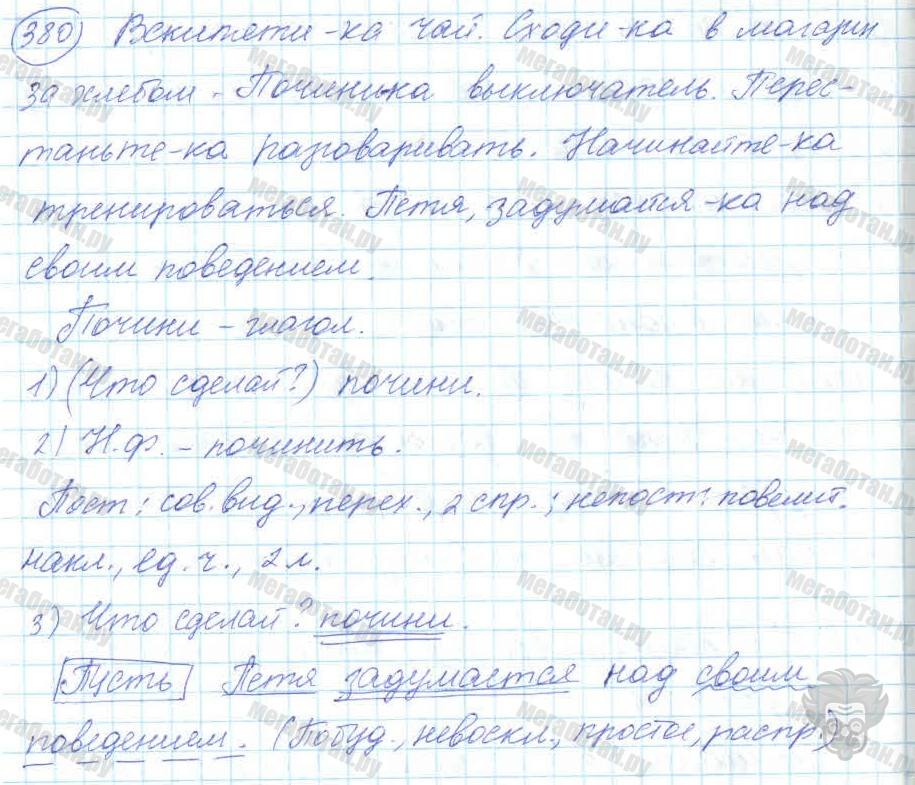 380) Вскипяти-ка чай. Сходи-ка в магазин
за хлебом. Почини-ка выключатель. Перес-
таньте-ка разговаривать. Начинайте-ка
тренироваться. Петя, задумайся-ка над
своим поведением.
Почини - глагол.
1) (Что сделай?) почини.
2) Н.ф. - починить.
Пост: сов. вид., перех., 2 спр.; непост: повелит.
накл., ед. ч., 2 л.
3) Что сделай? почини.
Пусть Петя задумается над своим
поведением. (Побуд., невоскл., простое, распр.)
Мегаботан.ру